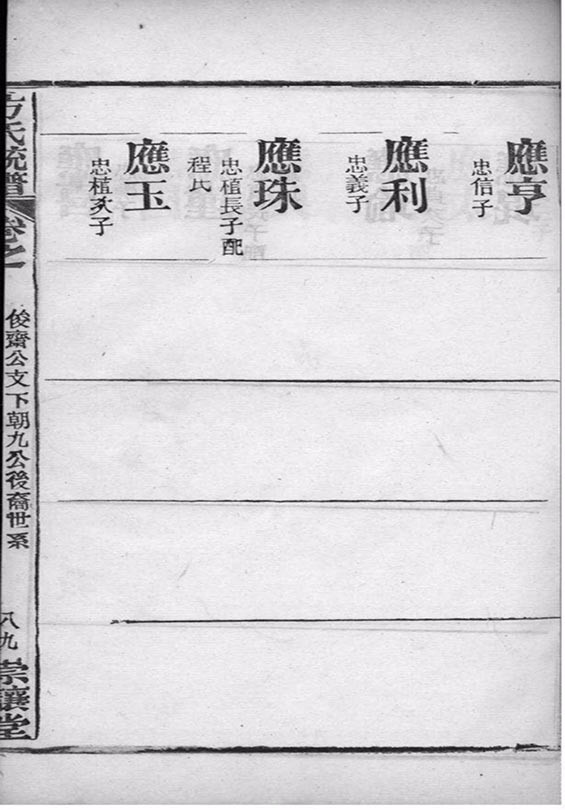 應亨
忠信子
應利
忠義子
應珠
忠植長子配
程氏
應玉
忠植次子
方氏統譜
卷之一
俊齋公文下朝九公後裔世系
八九
崇讓堂